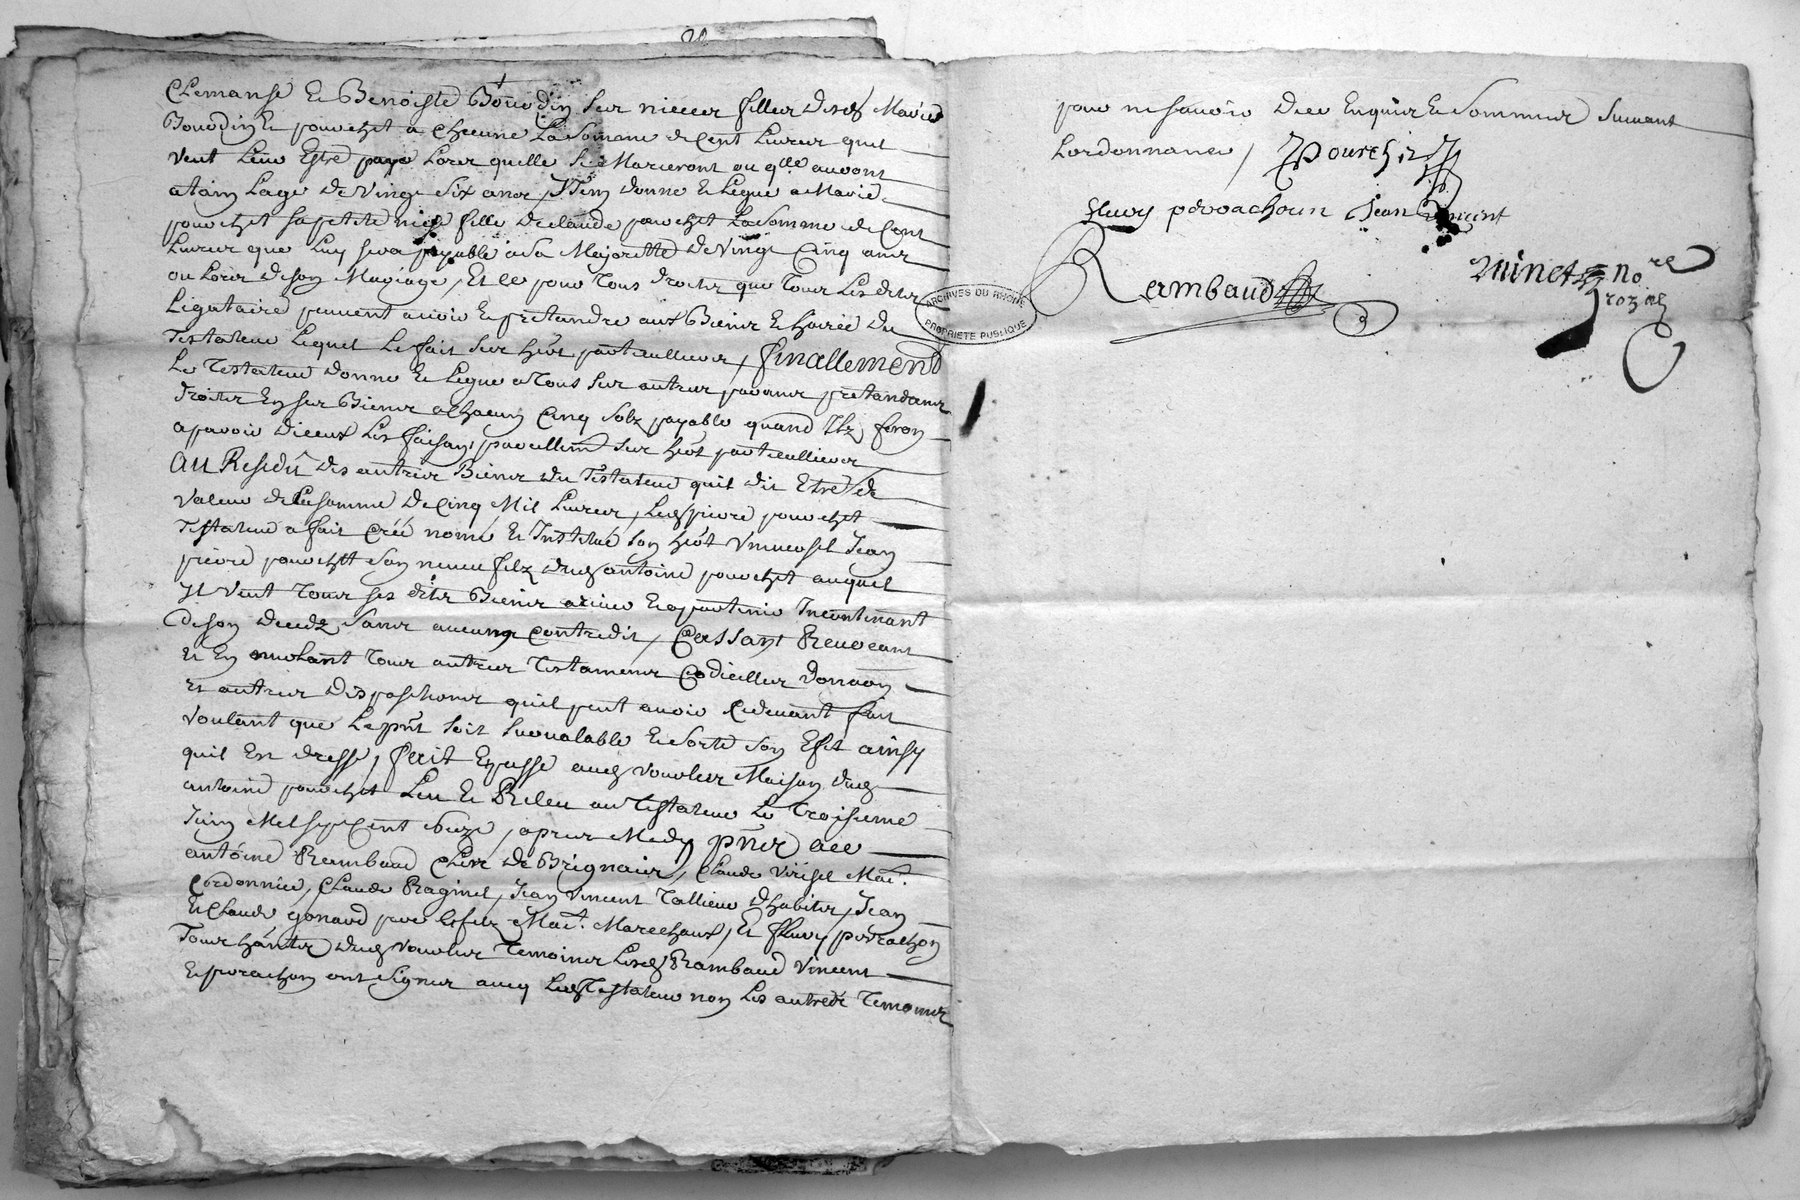 Clemanse Et Benoiste Bourdin ses niecces filles desd Maries
Bourdin Et pourchet a Checune La Somme de Cent Livres quil
veut Leur Estre paye Lors quelle se Marieront ou qlle auront
ataint Lage de Vingt Six ans, Item donne Et Legue a Marie
pourchet sa petite niece fille de claude pourchet La Somme de Cent
Livres que Luy sera payable a sa Majoritté de Vingt Cinq ans
ou Lors de son Mariage, Et ce pour Tous droits que Tous Les dits
Ligataire peuvent avoir Et pretandre aux Biens Et hoirie du
Testateur Lequel Le fait ses hers particulliers, finallement
Le Testateur donne Et Legue a Tous ses autres parans pretandans
droits En ses Biens a Chacun Cinq solz payable quand Ilz feron
aparoir diceux Les faisant pareillemt ses hers particulliers
Au Residu des autres Biens du Testateur quil dit Etre de
valeur de La somme de Cinq Mil Livres, Led pierre pourchet
Testateur a fait Créé nomé Et Institué son hert Universel Jean
pierre pourchet son neveu filz dud antoine pourchet auquel
Il veut Tous ses dits Biens ariver Et apartenir Incontinant
de son decedz sans aucung Contredit, Cassant Revocant
Et En nulant Tous autres Testamens Codicilles donaon
Et autres dispositions quil peut avoir Cidevant fait
voulant que Le pnt soit sur valable Et sorte son Efet ainsy
quil Est dressé, fait Et passé aud vourles Maison dud
antoine pourchet Leu Et Releu au Testateur Le Troisieme
Juin Mil sept Cent douze, apres Midy pnts Me
antoine Rambaud Clerc de Brignais, Claude Virisel Mai.
Cordonnier, Claude Raginel, Jean Vincent Tallieur dhabits, Jean
Et Claude gonard pere Et filz Mai. Marechaux, Et fleury perrachon
Tous hants dud vourles Temoins Lesd Rambaud Vincent
Et perrachon ont signes avec Led Testateur non Les autres Temoins
pour ne savoir De ce Enquis Et Sommes Suivant
Lordonnance, Pourchet
fleury perrachoun Jean Vincent
Rambaud
Minet Nore
rozal
ARCHIVES DU RHONE
PROPRIETE PUBLIQUE